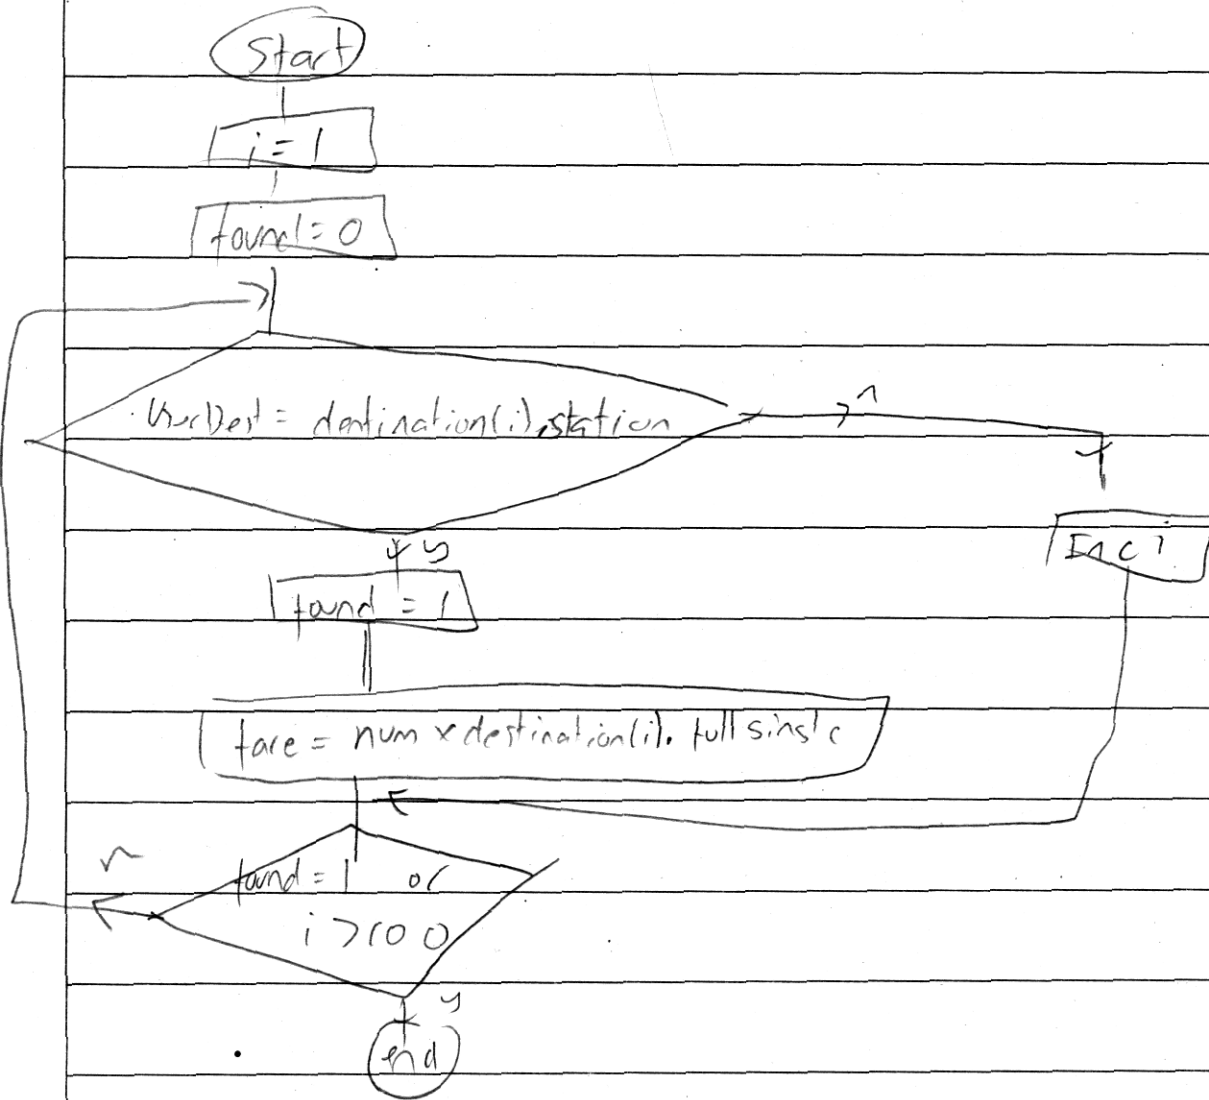 Start
i = 1
found = 0
UserDest = destination(i).station
n
y
Inc i
found = 1
fare = num x destination(i). fullsingle
n
found = 1 or
i > 100
y
end